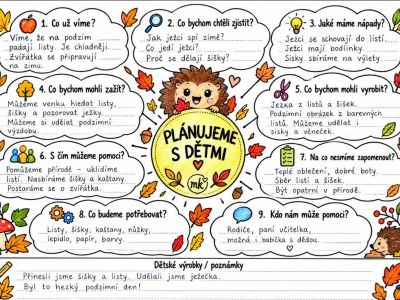 1. Co už víme?
Víme, že na podzim
padají listy. Je chladněji.
Zvířátka se připravují
na zimu.
2. Co bychom chtěli zjistit?
Jak ježci spí zimě?
Co jedí ježci?
Proč se dělají šišky?
3. Jaké máme nápady?
Ježci se schovají do listí.
Ježci mají bodlinky.
Sisky sbíráme na výlety.
4. Co bychom mohli zažít?
Můžeme venku hledat listy,
šišky a pozorovat ježky.
Můžeme si udělat podzimní
výzdobu.
PLÁNUJEME
S DĚTMI
mk
5. Co bychom mohli vyrobit?
Ježka z listů a šišek.
Podzimní obrázek z barevných
listů. Můžeme udělat i
sisky a věneček.
6. S čím můžeme pomoci?
Pomůžeme přírodě – uklidíme
listí. Nasbíráme šišky a kaštany.
Postaráme se o zvířátka.
7. Na co nesmíme zapomenout?
Teplé oblečení, dobré boty.
Sběr listí a šišek.
Být opatrní v přírodě.
8. Co budeme potřebovat?
Listy, šišky, kaštany, nůžky,
lepidlo, papír, barvy.
9. Kdo nám může pomoci?
Rodiče, paní učitelka,
možná i babička s dědou.
Dětské výrobky / poznámky
Přinesli jsme šišky a listy. Udělali jsme ježečka.
Byl to hezký podzimní den!